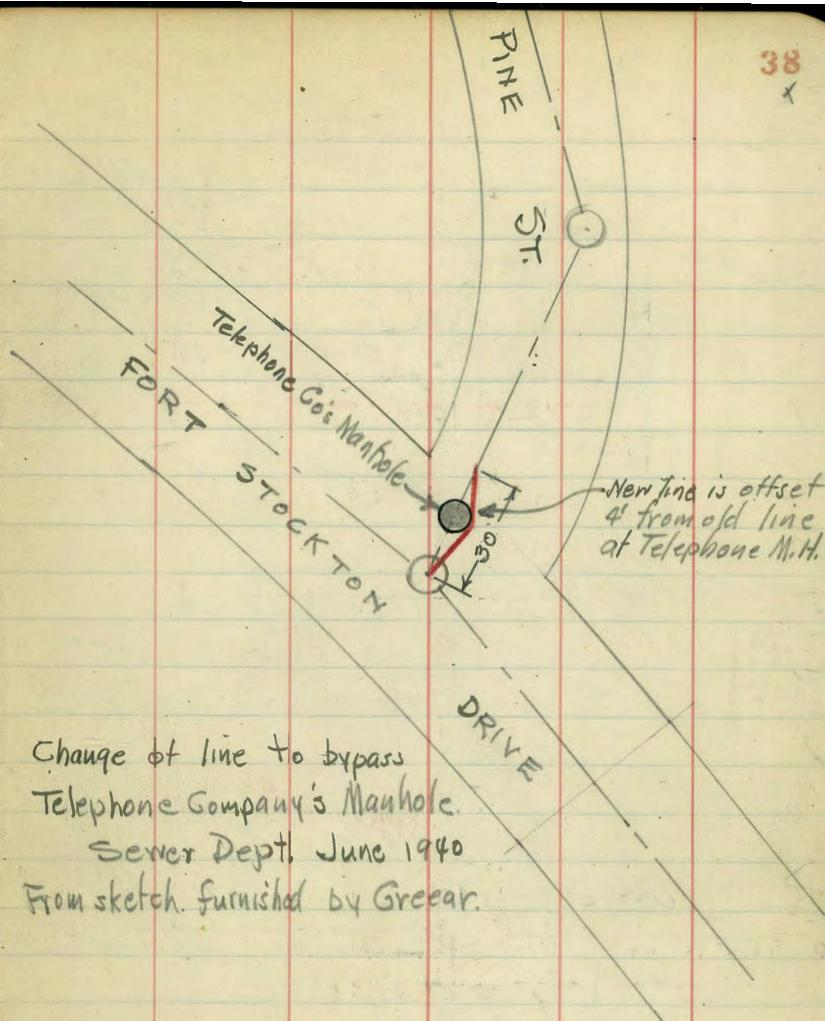 38
x
PINE
ST.
Telephone Co's Manhole
FORT STOCKTON
DRIVE
New line is offset
4' from old line
at Telephone M.H.
30'
Change of line to bypass
Telephone Company's Manhole.
Sewer Dept. June 1940
From sketch. furnished by Greear.